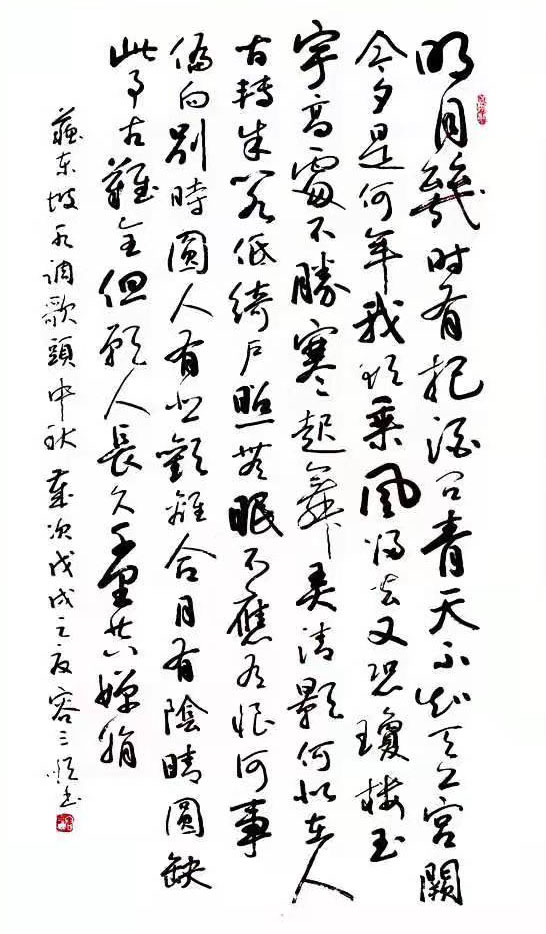 明月幾时有把酒问青天不知天上宫闕
今夕是何年我欲乘風归去又恐瓊樓玉
宇高處不勝寒起舞弄清影何似在人
间轉朱阁低綺户照無眠不應有恨何事
偏向别時圓人有悲歡離合月有陰晴圓缺
此事古難全但願人長久千里共嬋娟
蘇东坡水调歌頭中秋 歲次戊戌之夏容三书